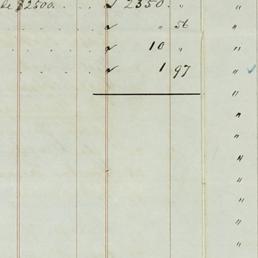 be $2500. . . ✓ 2350. "
. . . . ✓ " 5t "
. . . . ✓ 10 " "
. . . . ✓ 1 97 "
"
"
"
"
"
"
"
"